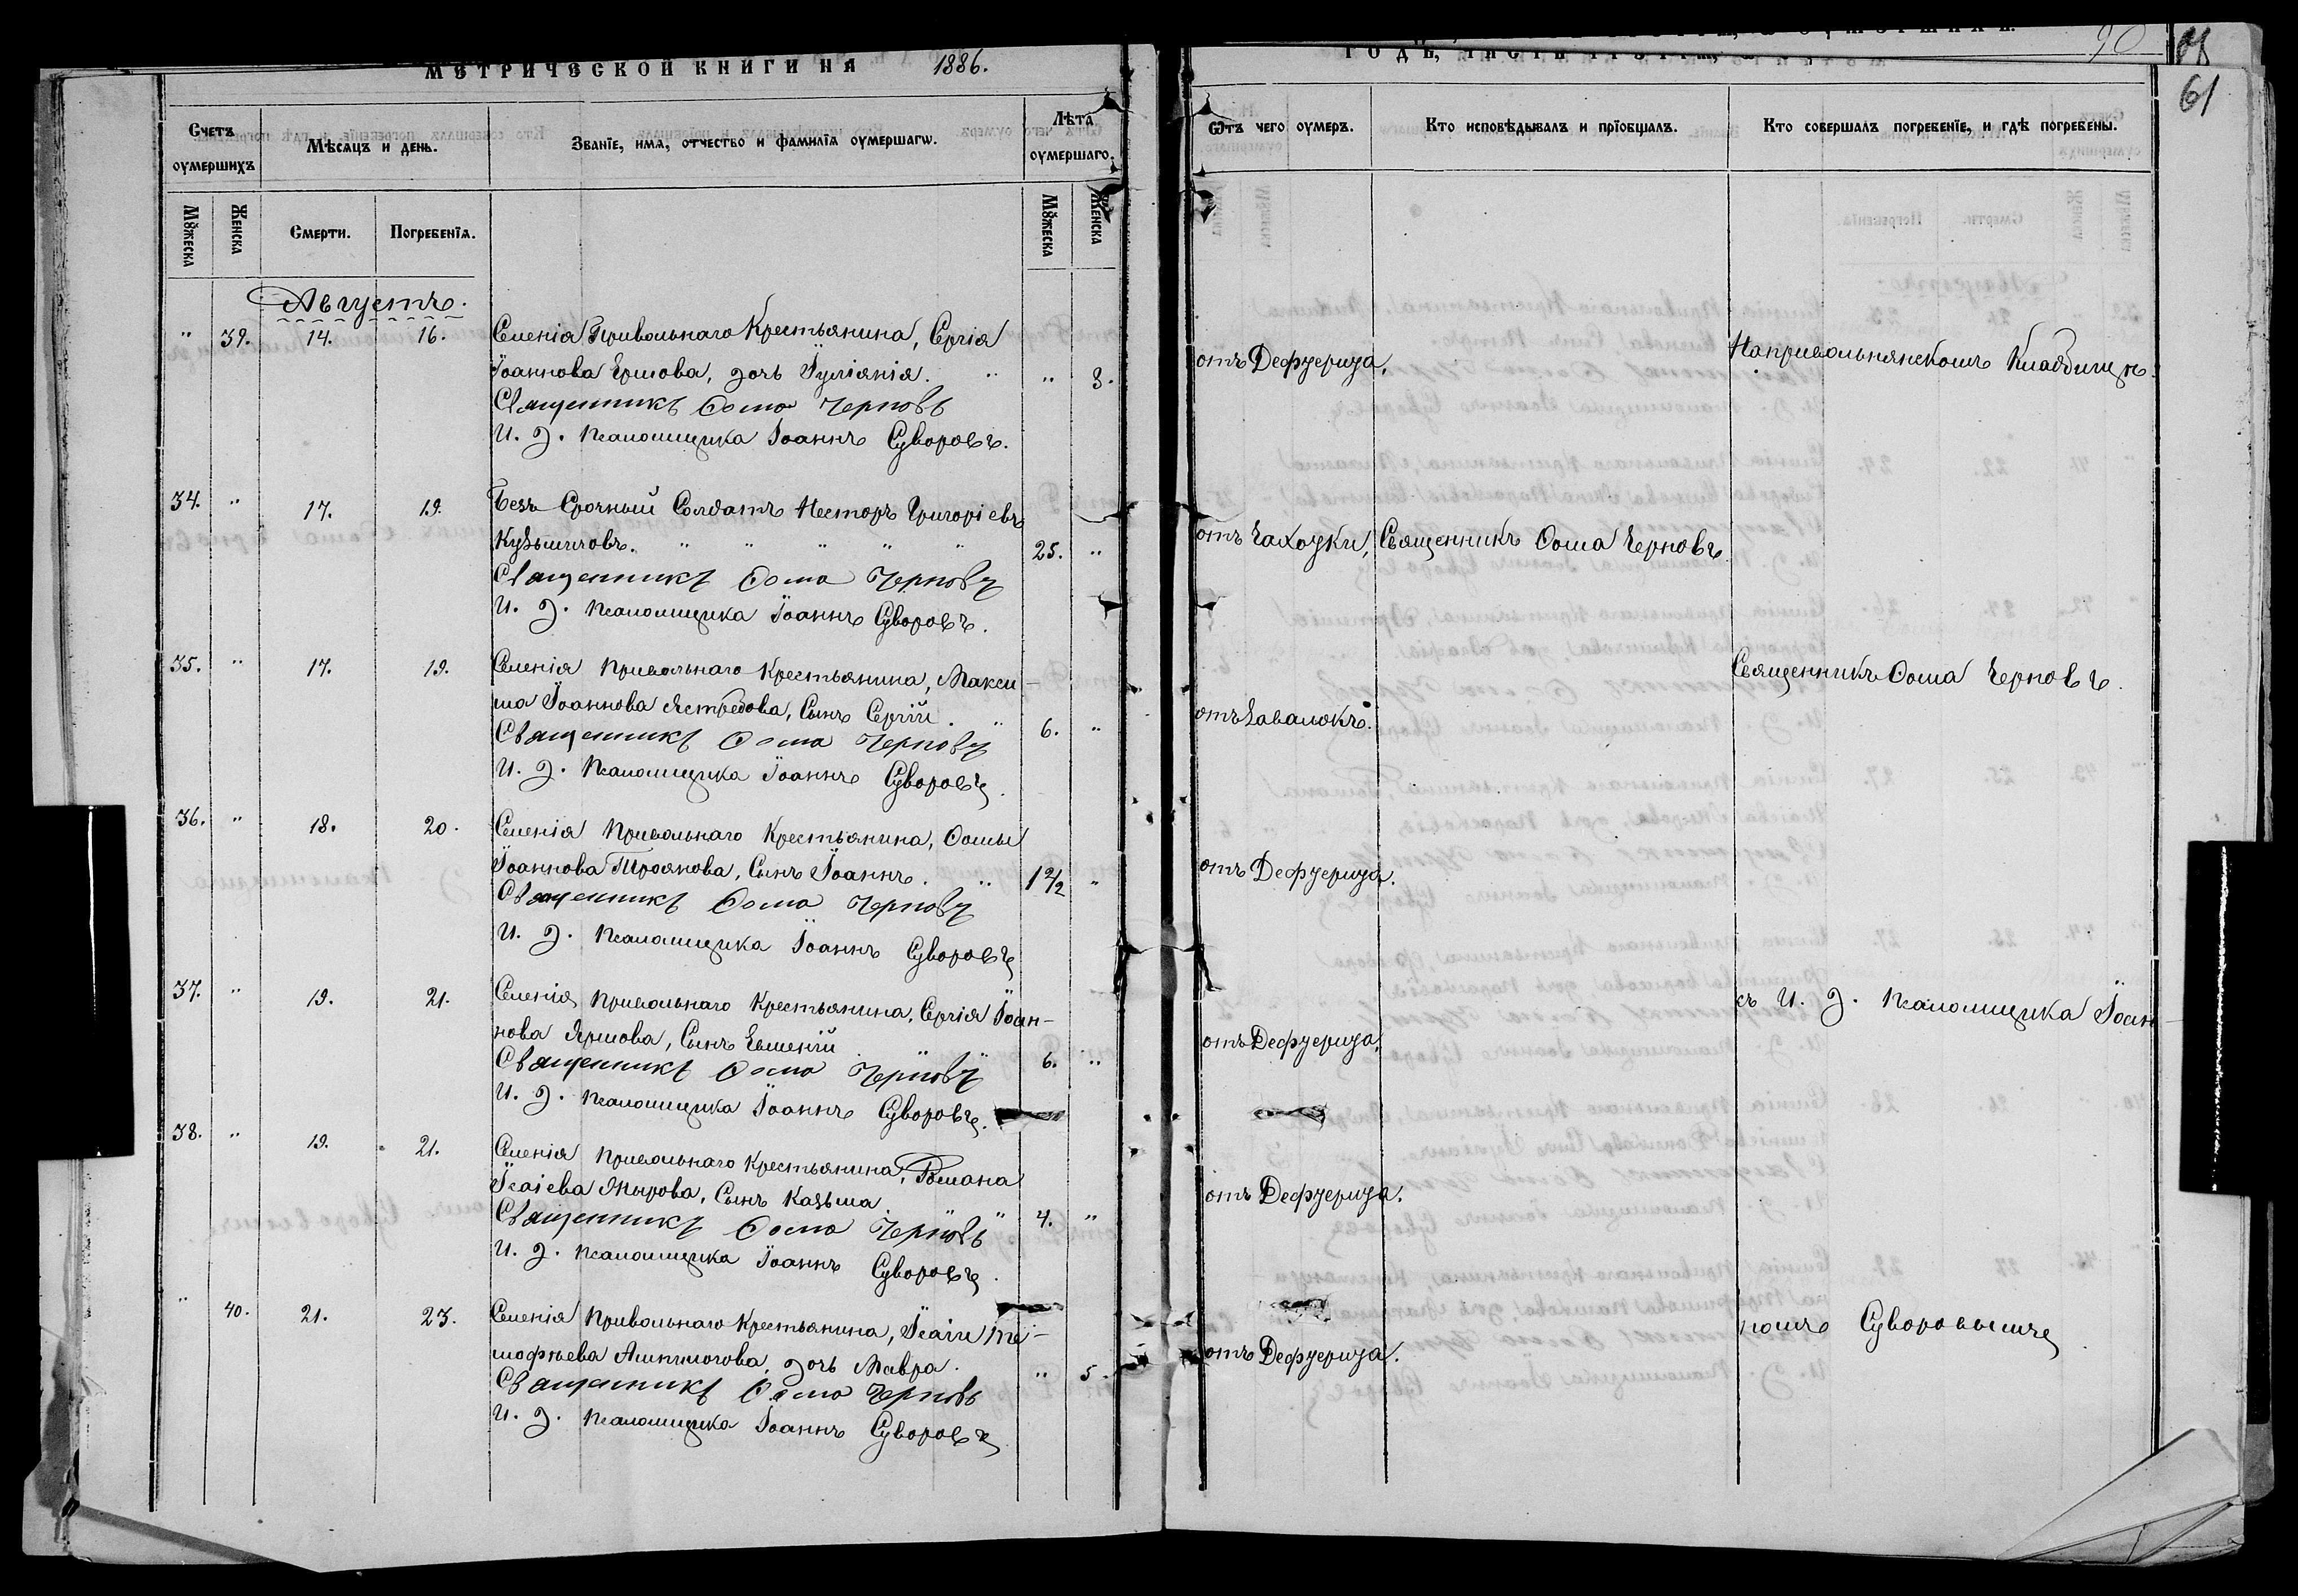 МЕТРИЧЕСКОЙ КНИГИ НА 1886.
Счетъ оумершихъ
Мѣсяцъ и день.
Званїе, имя, отчество и фамилїя оумершагω.
Лѣта оумершаго.
Мꙋжеска
Женска
Смерти.
Погребенїя.
Мꙋжеска
Женска
Августъ.
" 39. 14. 16. Селенія Привольнаго Крестьянина, Сергія
Іоаннова Ершова, дочь Іуліанія. " " 3.
Священникъ Ѳома Черновъ
И. д. Псаломщика Іоаннъ Суворовъ.
34. " 17. 19. Безъ Срочный Солдатъ Несторъ Григоріевъ
Кузьмичовъ. " " " " " 25. "
Священникъ Ѳома Черновъ
И. д. Псаломщика Іоаннъ Суворовъ.
35. " 17. 19. Селенія Привольнаго Крестьянина, Макси-
ма Іоаннова Ястребова, Сынъ Сергій. " 6. "
Священникъ Ѳома Черновъ
И. д. Псаломщика Іоаннъ Суворовъ.
36. " 18. 20. Селенія Привольнаго Крестьянина, Ѳомы
Іоаннова Троянова, Сынъ Іоаннъ. " "
Священникъ Ѳома Черновъ
И. д. Псаломщика Іоаннъ Суворовъ
37. " 19. 21. Селенія Привольнаго Крестьянина, Сергія Іоан-
нова Яршова, Сынъ Евменій. " " 6. "
Священникъ Ѳома Черновъ
И. д. Псаломщика Іоаннъ Суворовъ.
38. " 19. 21. Селенія Привольнаго Крестьянина, Романа
Ісаіева Мырова, Сынъ Казьма. 4. "
Священникъ Ѳома Черновъ
И. д. Псаломщика Іоаннъ Суворовъ.
" 40. 21. 23. Селенія Привольнаго Крестьянина, Ісаіи Ти-
мофѣева дочь Мавра. " 5.
Священникъ Ѳома Черновъ
И. д. Псаломщика Іоаннъ Суворовъ
90
61
Ѿтъ чего оумеръ.
Кто исповѣдывалъ и прїобщалъ.
Кто совершалъ погребенїе, и гдѣ погребены.
отъ Дефтерита.
На привольнянскомъ Кладбищѣ.
отъ Чахотки, Священникъ Ѳома Черновъ
Священникъ Ѳома Черновъ.
отъ Завалокъ.
отъ Дефтерита.
съ И. д. Псаломщика Іоан
отъ Дефтерита.
отъ Дефтерита.
номъ Суворовымъ
отъ Дефтерита.